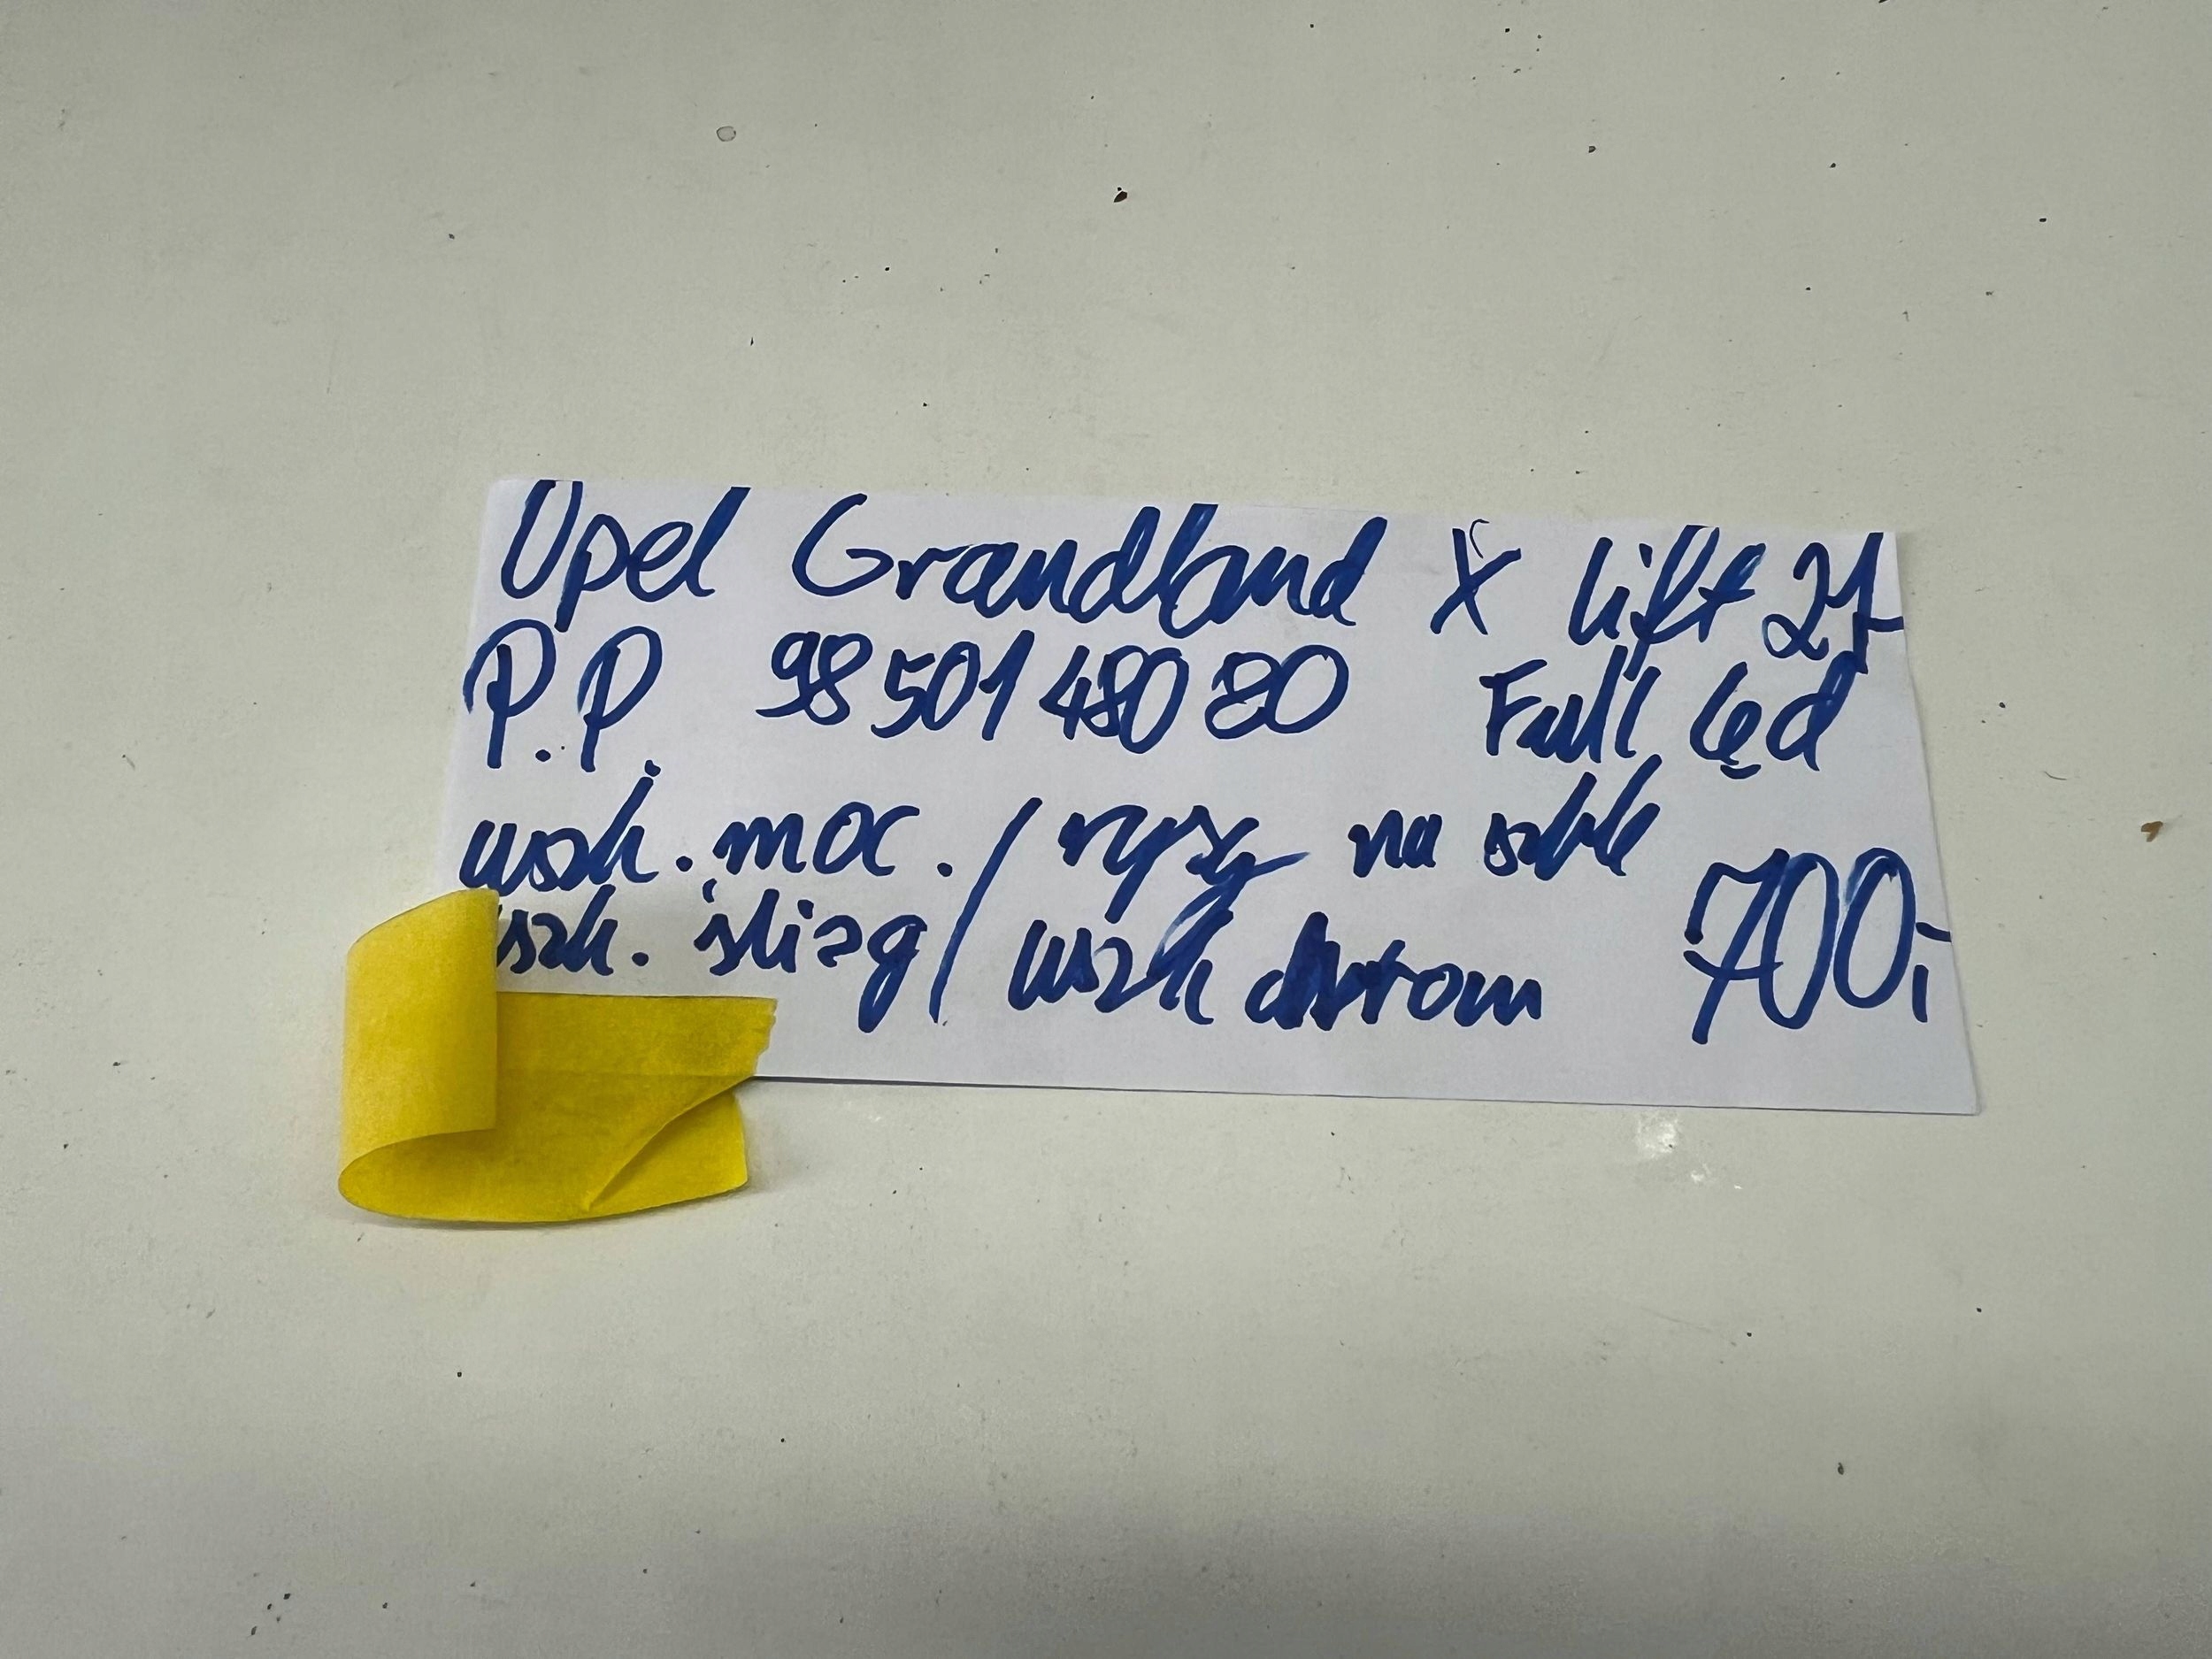 Opel Grandland X lift 21-
P.P. 98 501 480 80 Full Led
uszk. moc. / rysy na szkle
uszk. ślizg / uszk chrom 700,-